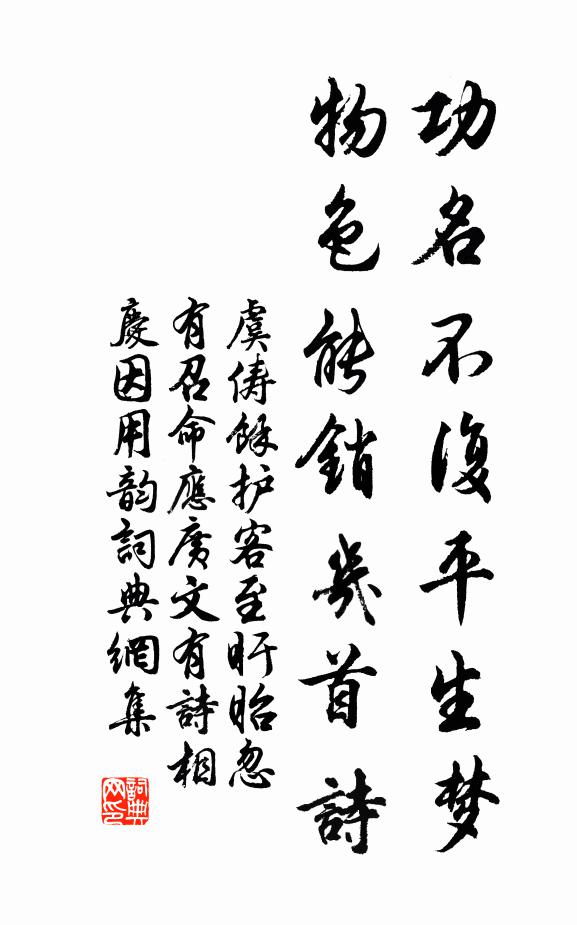 功名不復平生梦
物色能銷幾首詩
虞儔餘护客至盱眙忽
有召命應廣文有詩相
慶因用韵詞典網集
詞典
网印